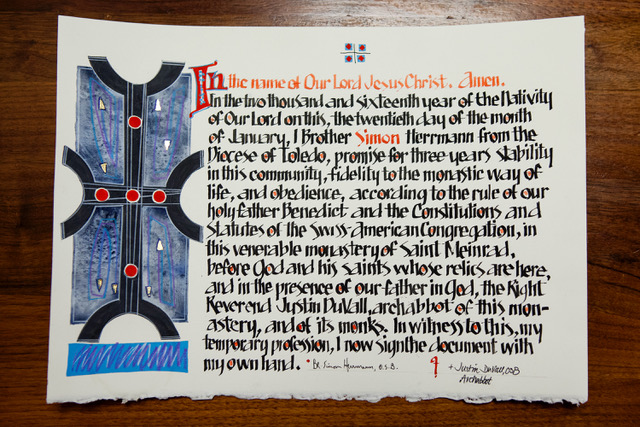 In the name of Our Lord Jesus Christ. Amen.
In the two thousand and sixteenth year of the Nativity
of Our Lord on this, the twentieth day of the month
of January, I Brother Simon Herrmann from the
Diocese of Toledo, promise for three years stability
in this community, fidelity to the monastic way of
life, and obedience, according to the rule of our
holy father Benedict and the Constitutions and
Statutes of the Swiss-American Congregation, in
this venerable monastery of Saint Meinrad,
before God and his saints whose relics are here,
and in the presence of our father in God, the Right
Reverend Justin DuVall, archabbot of this mon-
astery, and of its monks. In witness to this, my
temporary profession, I now sign the document with
my own hand. Br. Simon Herrmann, O.S.B. + Justin DuVall, OSB
Archabbot